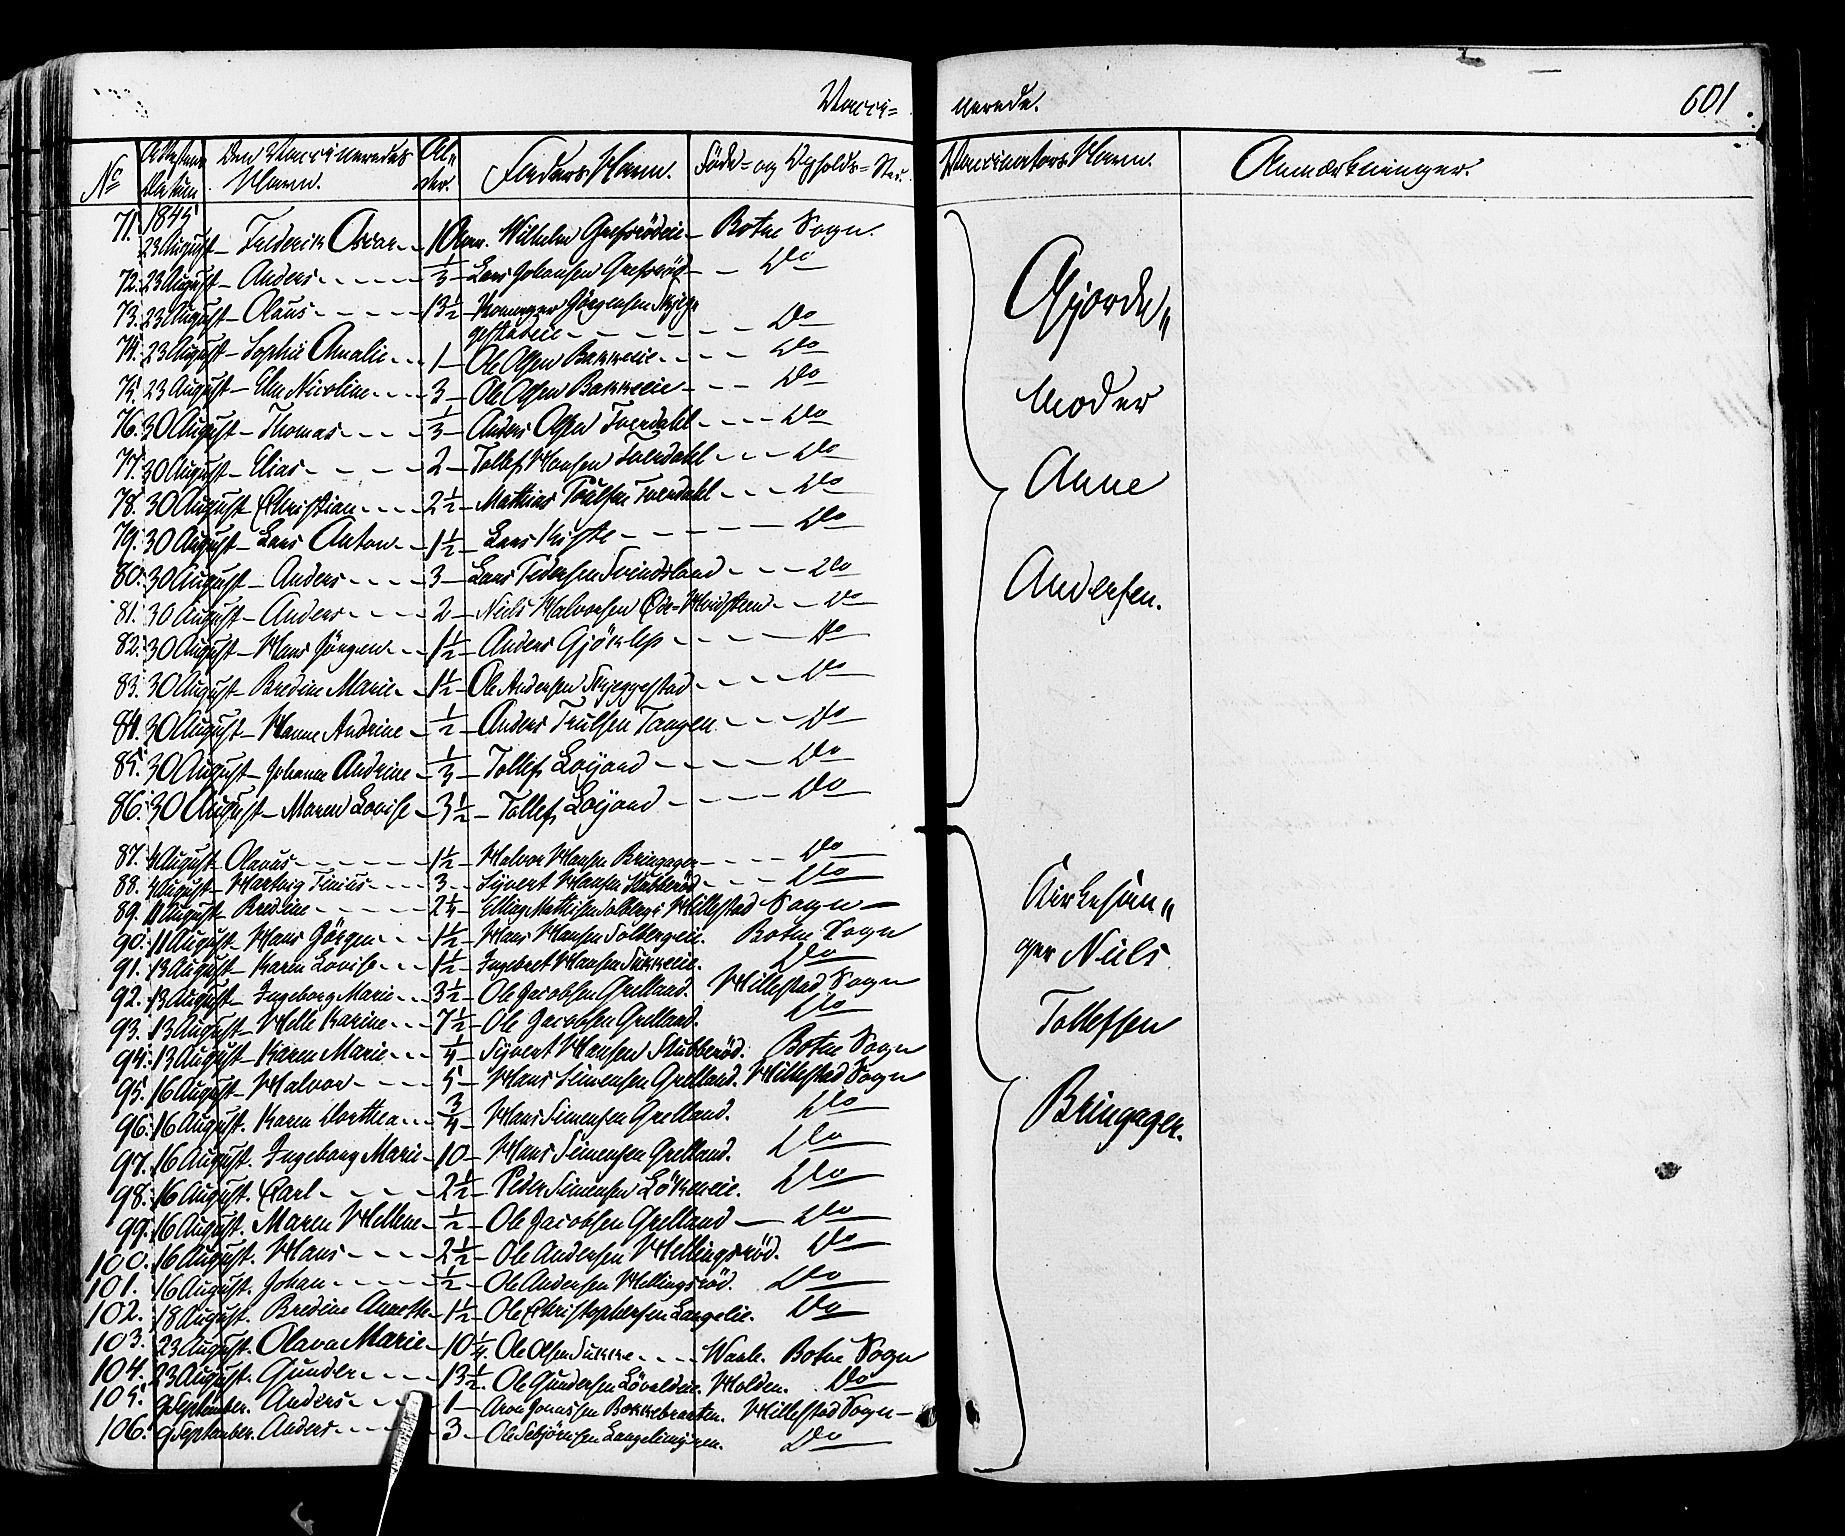 Vacci= nerede. 601
No Attestens Datum. Den Vaccineredes Navn. Al= der. Faders Navn. Föde= og Opholds= Sted. Vaccinators Navn. Anmærkninger.
1845
71. 23 August – Frederik Oscar – 10 Wilhelm Grefsrödeie – Botne Sogn.
72. 23 August – Anders – 1/3 – Lars Johansen Grefsröd – Do
73. 23 August – Olaus – 13 1/2 – Jörgensen Skjeg=
gestadeie – Do
74. 23 August – Sophie Amalie – 1 – Ole Olsen Bakkeeie – Do
75. 23 August – Elen Nicoline – 3 – Ole Olsen Bakkeeie – Do
76. 30 August – Thomas – 1/3 – Anders Olsen Tverdahl – Do
77. 30 August – Elias – 2 – Tollef Hansen Tverdahl – Do
78. 30 August – Christian – 2 1/2 – Mathias Trulsen Tverdahl – Do
79. 30 August – Lars Anton – 1 1/2 – Lars – Do
80. 30 August – Anders – 3 – Lars Pedersen Svindsland – Do
81. 30 August – Anders – 2 – Niels Halvorsen – Do
82. 30 August – Hans Jörgen – 1 1/2 – Anders Gjöklep – Do
83. 30 August – Bredine Marie – 1 1/2 – Ole Andersen Skjeggestad – Do
84. 30 August – Hanne Andrine – 1/2 – Anders Trulsen Tangen – Do
85. 30 August – Johanne Andrine – 1/3 – Tollef – Do
86. 30 August – Maren Lovise – 3 1/2 – Tollef – Do
Gjorde=
moder
Anne
Andersen.
87. 4 August – Olaus – 1 1/2 – Halvor Hansen Bringager – Do
88. 4 August – Hartvig Tinius – 3 – Syvert Hansen Stubberöd – Do
89. 11 August – Bredine – 2 1/4 – Elling Mathisen Solberg Hillestad Sogn –
90. 11 August – Hans Jörgen – 1 1/2 – Hans Hansen Solbergeie. Botne Sogn
91. 13 August – Karen Lovise – 1 1/2 – Ingebret Hansen Sukkeeie. Do
92. 13 August – Ingeborg Marie – 3 1/2 – Ole Jacobsen Grelland. Hillestad Sogn
93. 13 August – Helle Karine – 7 1/2 – Ole Jacobsen Grelland. Do
94. 13 August – Karen Marie – 1/4 – Syvert Hansen Stubberöd. Botne Sogn
95. 16 August – Halvor – 5 – Hans Simensen Grelland. Hillestad Sogn
96. 16 August. Karen Dorthea – 3/4 – Hans Simensen Grelland. Do
97. 16 August. Ingeborg Marie – 10 – Hans Simensen Grelland. Do
98. 16 August. Carl – 2 1/2 – Peder Simensen Lökeneie. Do
99. 16 August. Maren Hellene – 1/2 – Ole Jacobsen Grelland – Do
100. 16 August. Hans – 2 1/2 – Ole Andersen Hellingsröd. Do
101. 16 August. Johan – 1/2 – Ole Andersen Hellingsröd. Do
102. 18 August. Bredine Annette – 1 1/2 – Ole Christophersen Langelie. Do
103. 23 August. Olava Marie – 10 1/4. Ole Olsen Sukke – Waale. Botne Sogn
104. 23 August. Gunder – 13 1/2. Ole Gundersen Lövaldeie. Holden. Do
105. 9 September. Anders – 1 – Aron Jonassen Bakkebraaten. Hillestad Sogn –
106. 9 September. Anders – 3 – Ole Sebjörnsen Langelimyren. Do
Kirkesan=
ger Niels
Tollefsen
Bringager.